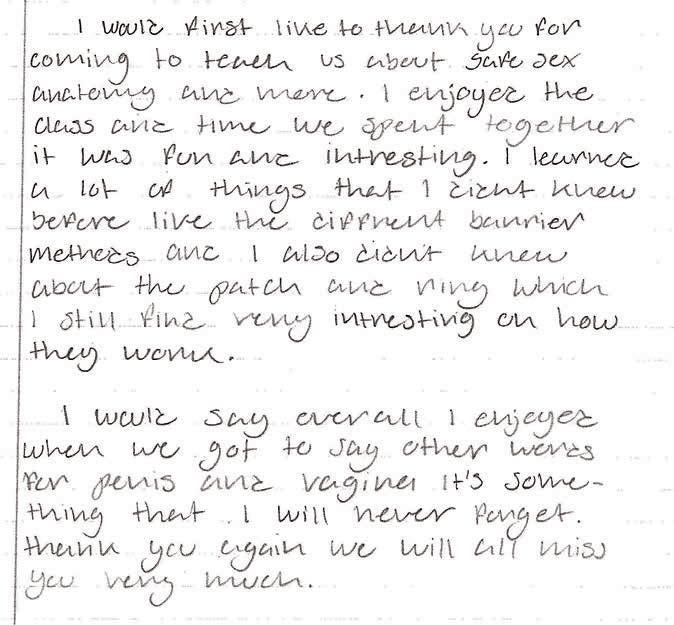 I would first like to thank you for
coming to teach us about safe sex
anatomy and more. I enjoyed the
class and time we spent together
it was fun and intresting. I learned
a lot of things that I didnt know
before like the diffrent barrier
methods and I also didn't know
about the patch and ring which
I still find very intresting on how
they work.
I would say overall I enjoyed
when we got to say other words
for penis and vagina it's some-
thing that I will never forget.
thank you again we will all miss
you very much.